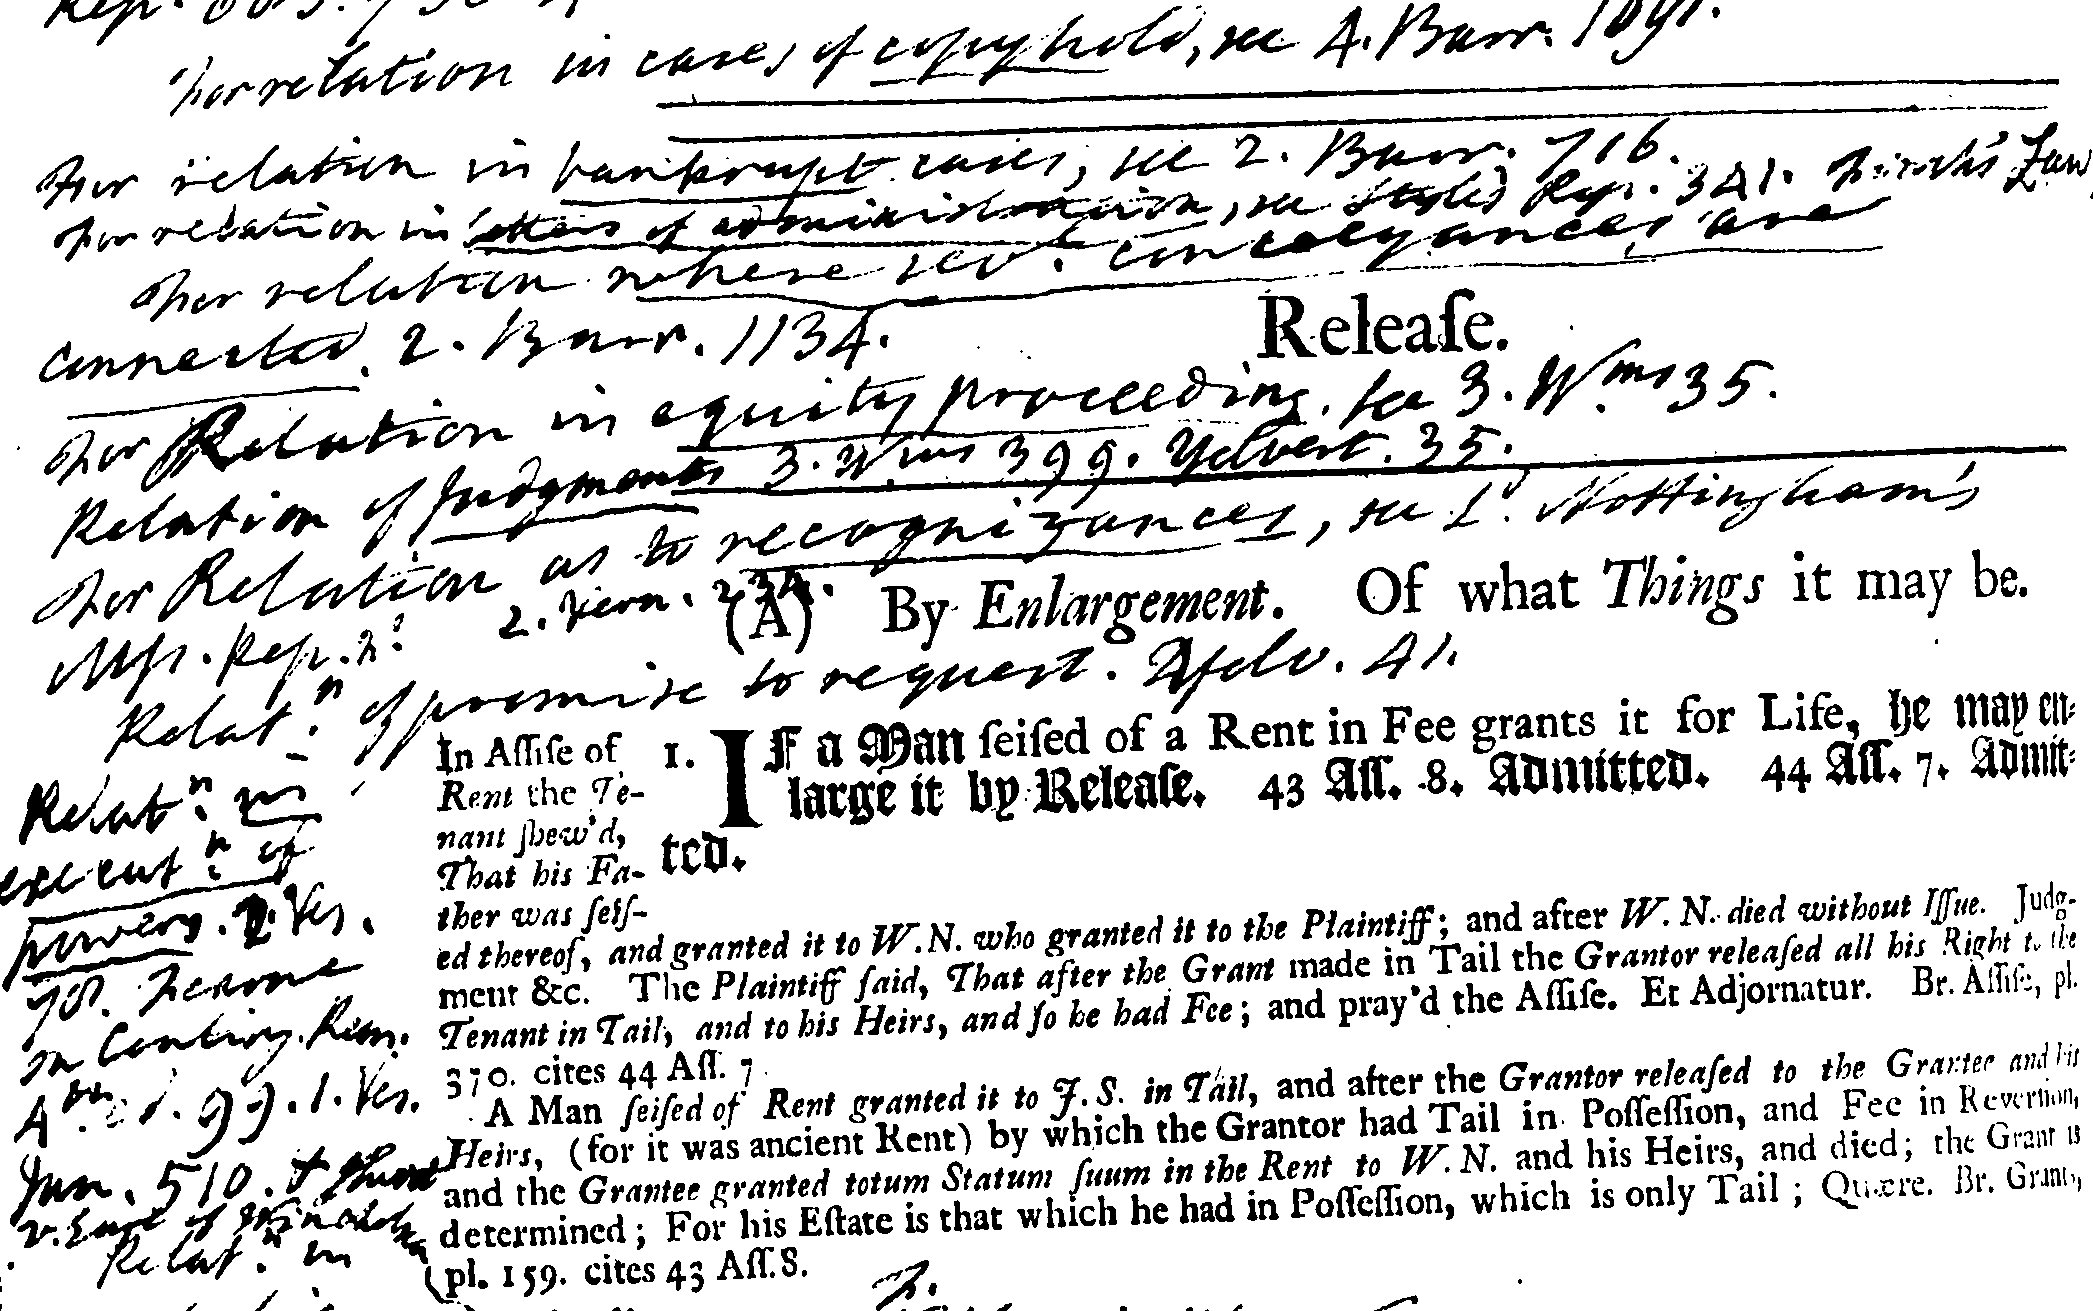 For relation in cases of copyhold, see 4. Burr.
For relation in bankrupt cases, see 2. Burr. 716.
For relation in letters of administration, see Styles Rep. 341. Law
For relation where sev.l conveyances are
connected. 2. Burr. 1134.
Releaſe.
For Relation in equity proceeding, see 3. Wms 35.
Relation of Judgments 3. Wms 399. Yelvert. 35.
For Relation as to recognizances, see Ld. Nottingham's
Mss. Rep. 2. Vern. 234.
(A) By Enlargement. Of what Things it may be.
Relat.n of promise to request. Yelv. 41.
1. IF a Man ſeiſed of a Rent in Fee grants it for Life, he may en-
large it by Releaſe. 43 Aſſ. 8. Admitted. 44 Aſſ. 7. Admit-
ted.
In Aſſiſe of
Rent the Te-
nant ſhew'd,
That his Fa-
ther was ſeiſ-
ed thereof, and granted it to W.N. who granted it to the Plaintiff; and after W. N. died without Iſſue. Judg-
ment &c. The Plaintiff ſaid, That after the Grant made in Tail the Grantor releaſed all his Right to the
Tenant in Tail, and to his Heirs, and ſo he had Fee; and pray'd the Aſſiſe. Et Adjornatur. Br. Aſſiſe, pl.
370. cites 44 Aſſ. 7.
A Man ſeiſed of Rent granted it to J. S. in Tail, and after the Grantor releaſed to the Grantee and his
Heirs, (for it was ancient Rent) by which the Grantor had Tail in Poſſeſſion, and Fee in Reverſion,
and the Grantee granted totum Statum ſuum in the Rent to W. N. and his Heirs, and died; the Grant is
determined; For his Eſtate is that which he had in Poſſeſſion, which is only Tail; Quære. Br. Grants,
pl. 159. cites 43 Aſſ. 8.
Relat.n in
execut.n of
powers. 2. Ves.
78. Fearne
on Conting. Rem.
99. 1. Ves.
Jun. 510.
v. Earl of
Relat.n in